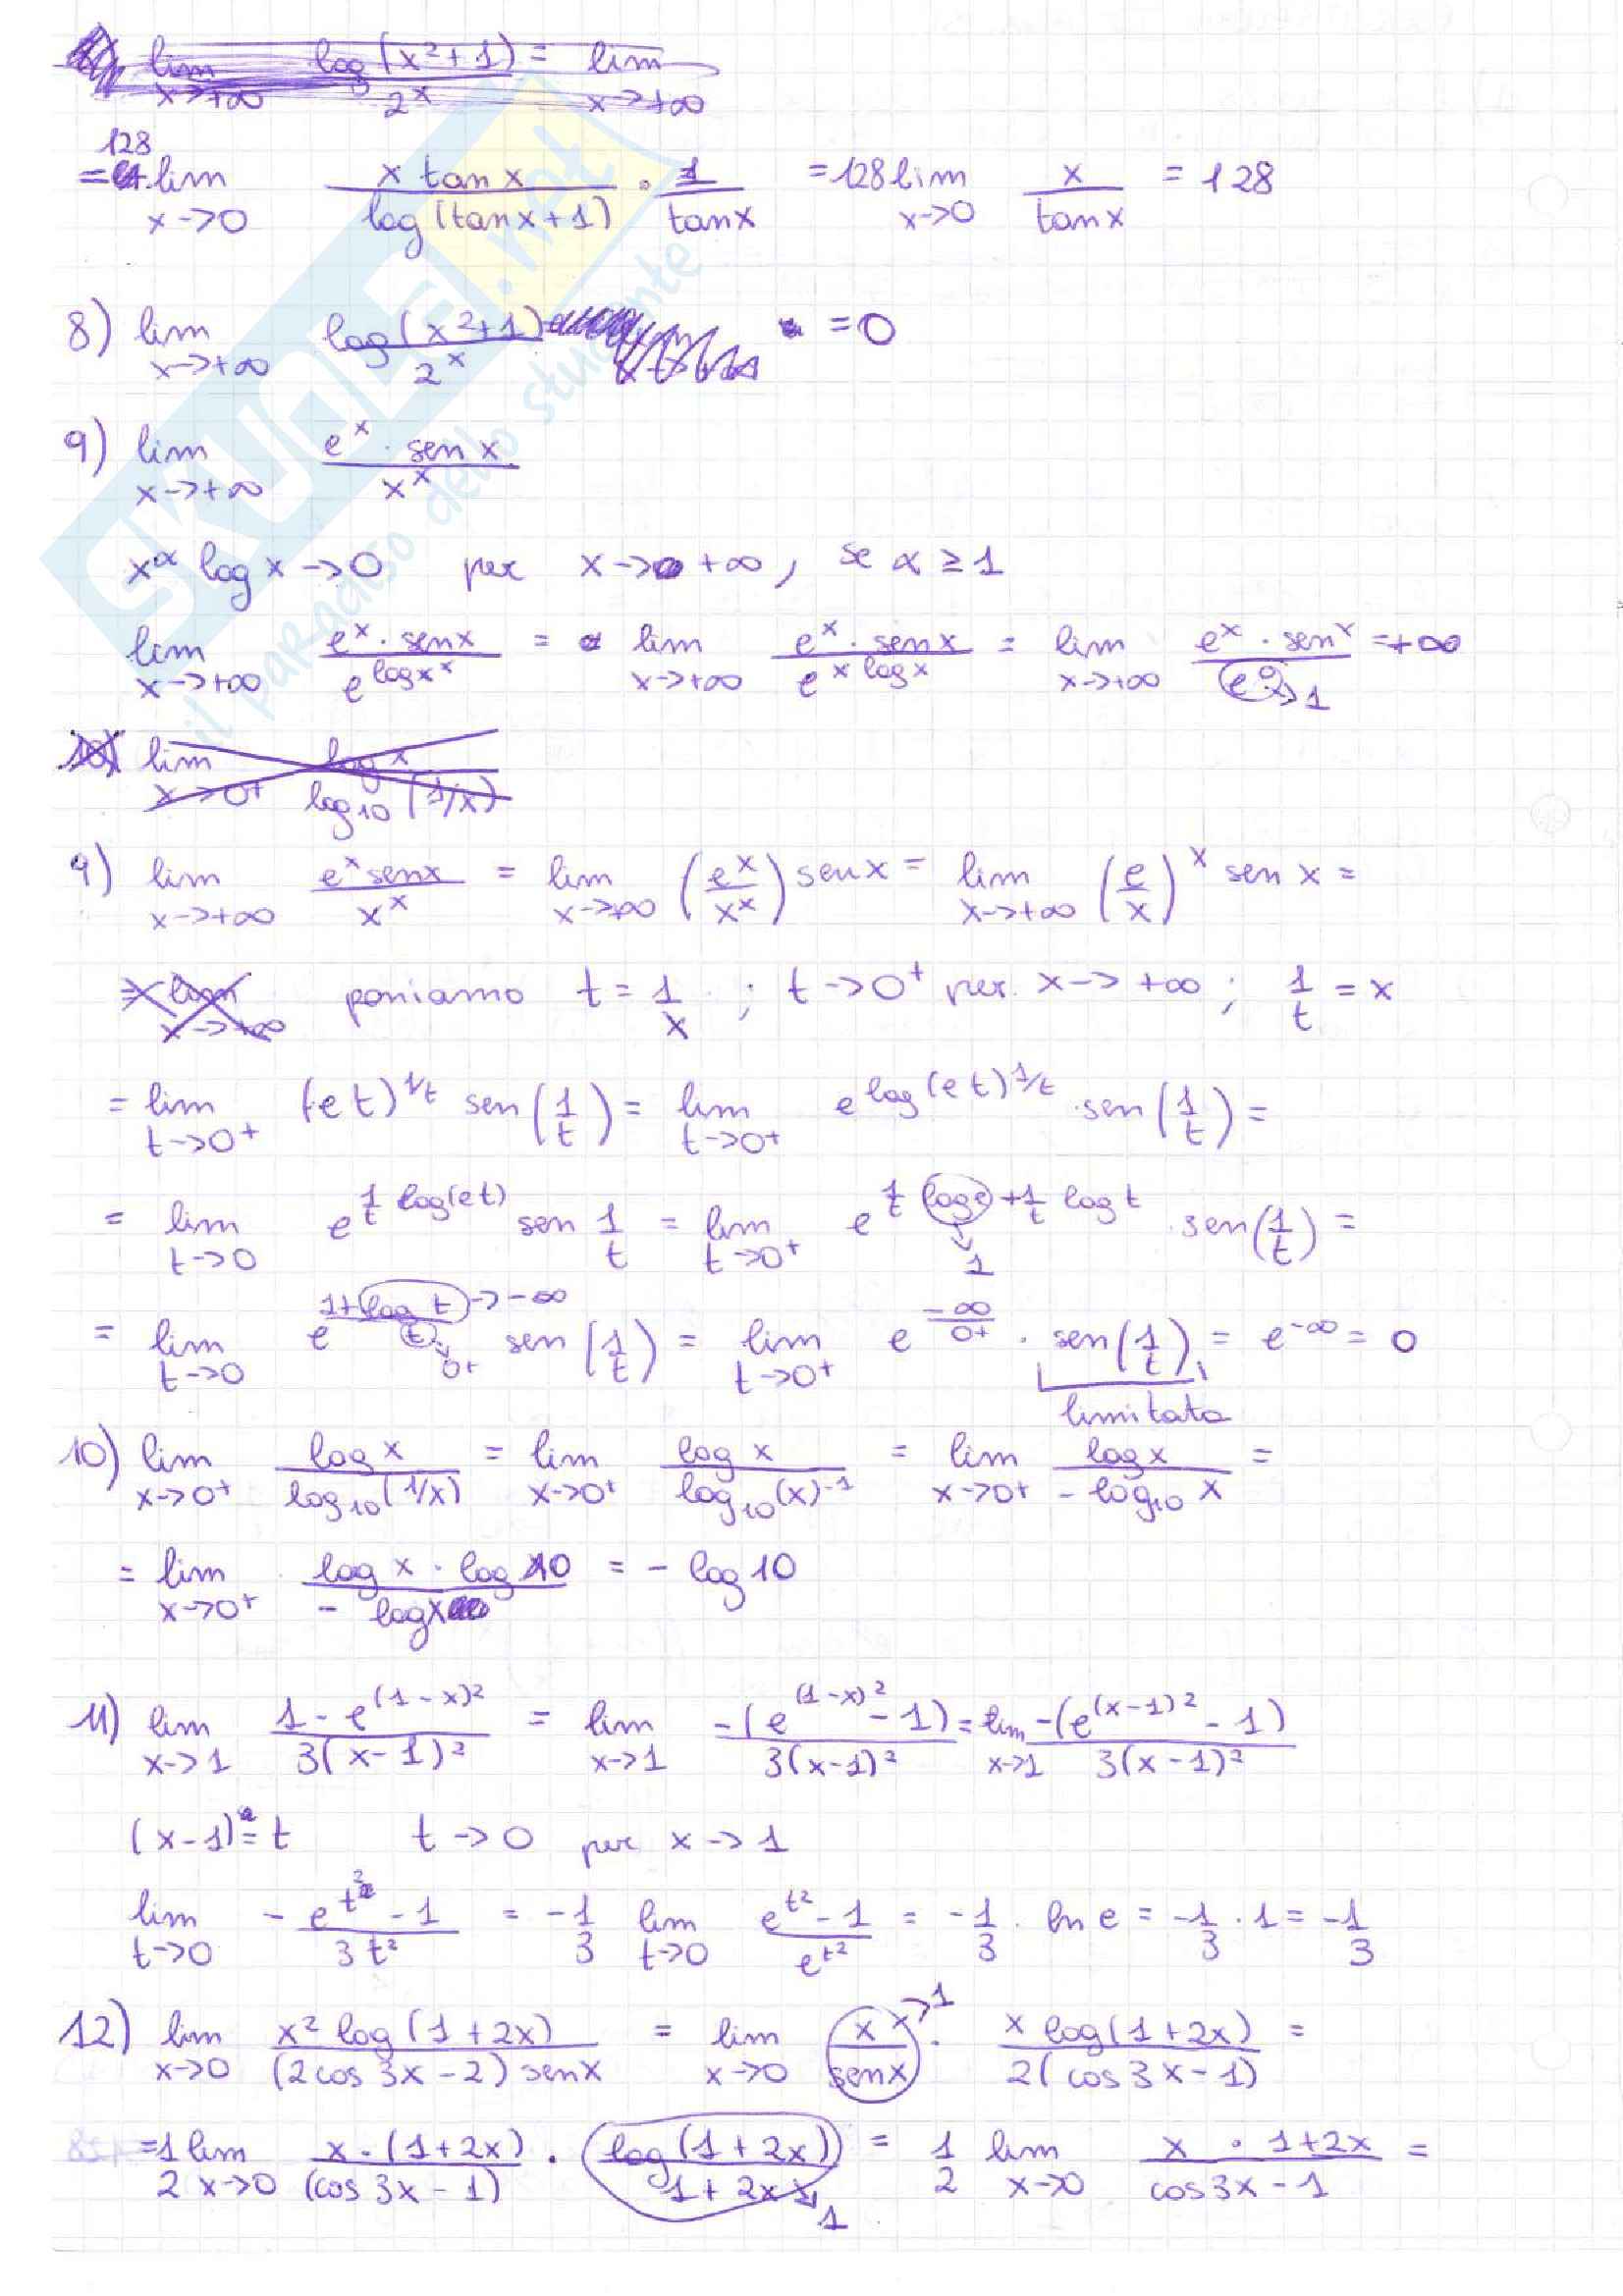 lim x->+∞ log(x²+1)/2^x = lim x->+∞
= 128 lim x->0 (x tanx)/(log(tanx+1)) · 1/tanx = 128 lim x->0 x/tanx = 128
8) lim x->+∞ log(x²+1)/2^x = 0
9) lim x->+∞ (e^x · senx)/x^x
x^α log x -> 0 per x -> +∞, se α ≥ 1
lim x->+∞ (e^x · senx)/e^(log x^x) = lim x->+∞ (e^x · senx)/e^(x log x) = lim x->+∞ (e^x · senx)/e^0 = +∞
->1
10) lim x->0+ log x/log₁₀(1/x)
9) lim x->+∞ (e^x senx)/x^x = lim x->+∞ (e^x/x^x) senx = lim x->+∞ (e/x)^x sen x =
= lim x->+∞ poniamo t = 1/x ; t->0+ per x-> +∞ ; 1/t = x
= lim t->0+ (et)^(1/t) sen(1/t) = lim t->0+ e^(log(et)^(1/t)) · sen(1/t) =
= lim t->0 e^(1/t log(et)) sen 1/t = lim t->0+ e^(1/t log e + 1/t log t) · sen(1/t) =
->1
= lim t->0 e^((1+log t)/t) sen(1/t) = lim t->0+ e^(-∞/0+) · sen(1/t) = e^(-∞) = 0
->-∞ ->0+
limitata
10) lim x->0+ log x/log₁₀(1/x) = lim x->0+ log x/log₁₀(x)^-1 = lim x->0+ log x/-log₁₀ x =
= lim x->0+ (log x · log 10)/(- log x) = - log 10
11) lim x->1 (1 - e^((1-x)²))/(3(x-1)²) = lim x->1 -(e^((1-x)²) - 1)/(3(x-1)²) = lim x->1 -(e^((x-1)²) - 1)/(3(x-1)²)
(x-1) = t t->0 per x->1
lim t->0 - (e^(t²) - 1)/(3t²) = -1/3 lim t->0 (e^(t²) - 1)/e^(t²) = -1/3 · ln e = -1/3 · 1 = -1/3
12) lim x->0 (x² log(1+2x))/((2cos3x-2) senx) = lim x->0 x/senx ->1 · (x log(1+2x))/(2(cos3x-1)) =
= 1/2 lim x->0 (x·(1+2x))/(cos3x-1) · log(1+2x)/(1+2x) = 1/2 lim x->0 (x · 1+2x)/(cos3x-1) =
->1
SKUOLA.net
il paradiso dello studente